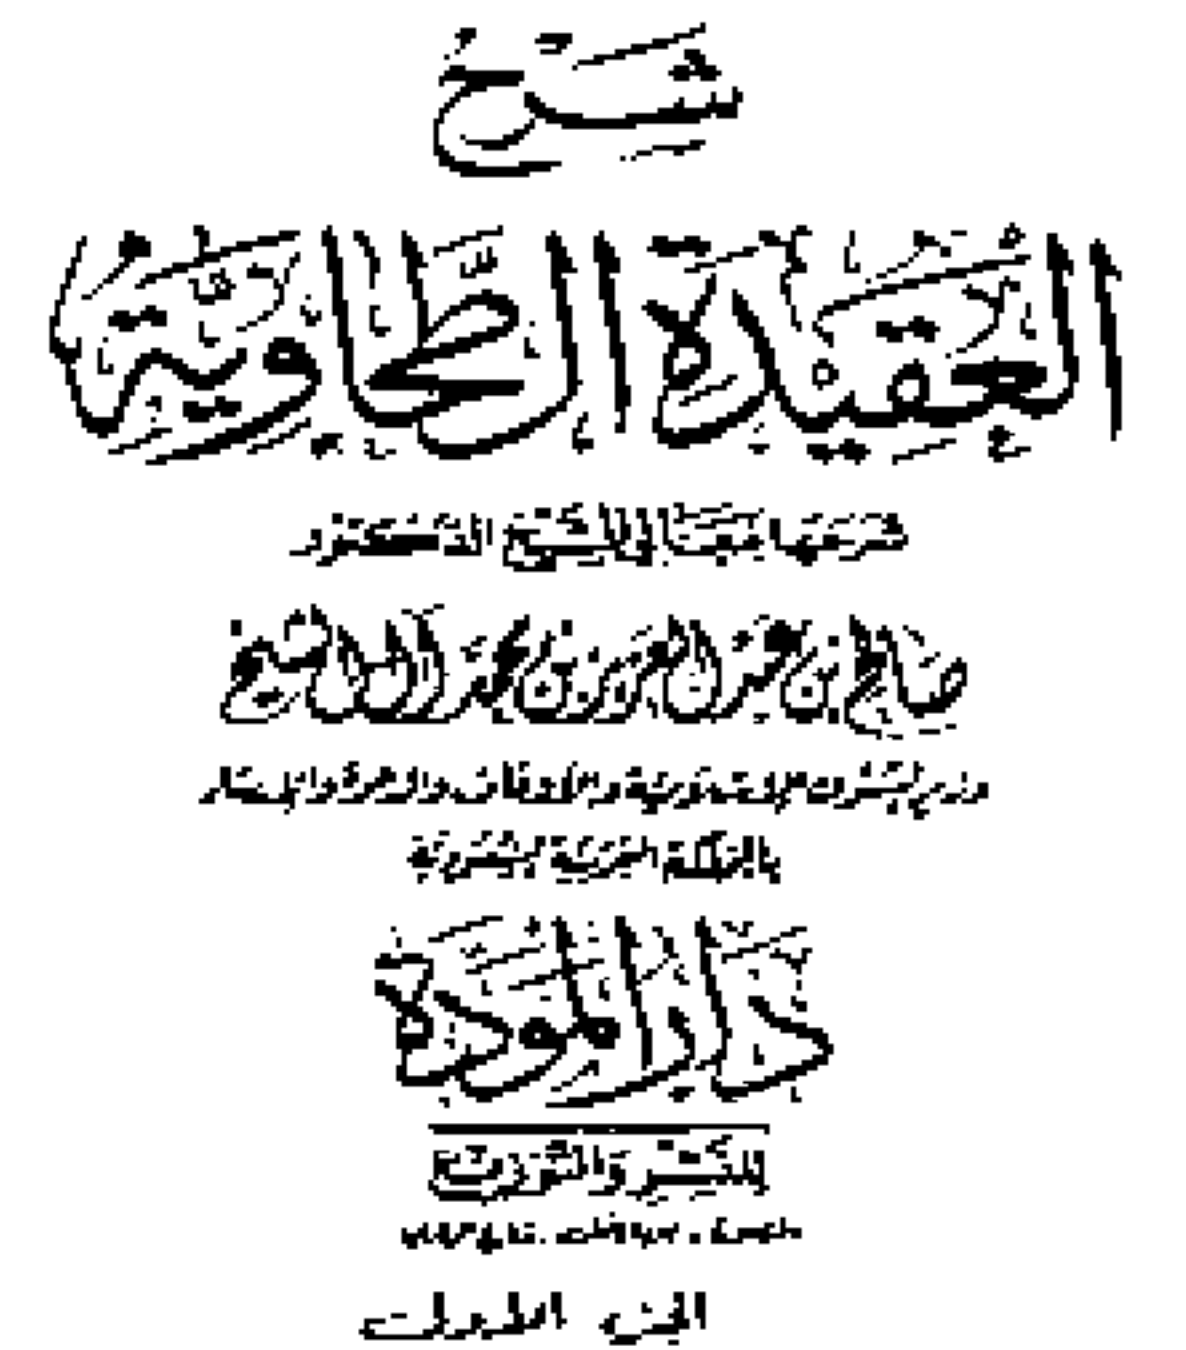 شرح
العقيدة الطحاوية
شرحها معالي الشيخ الدكتور
صالح بن عبد العزيز بن محمد آل الشيخ
وزير الشئون الإسلامية والأوقاف والدعوة والإرشاد
بالمملكة العربية السعودية
دار المودة
للنشر والتوزيع
الجزء الأول